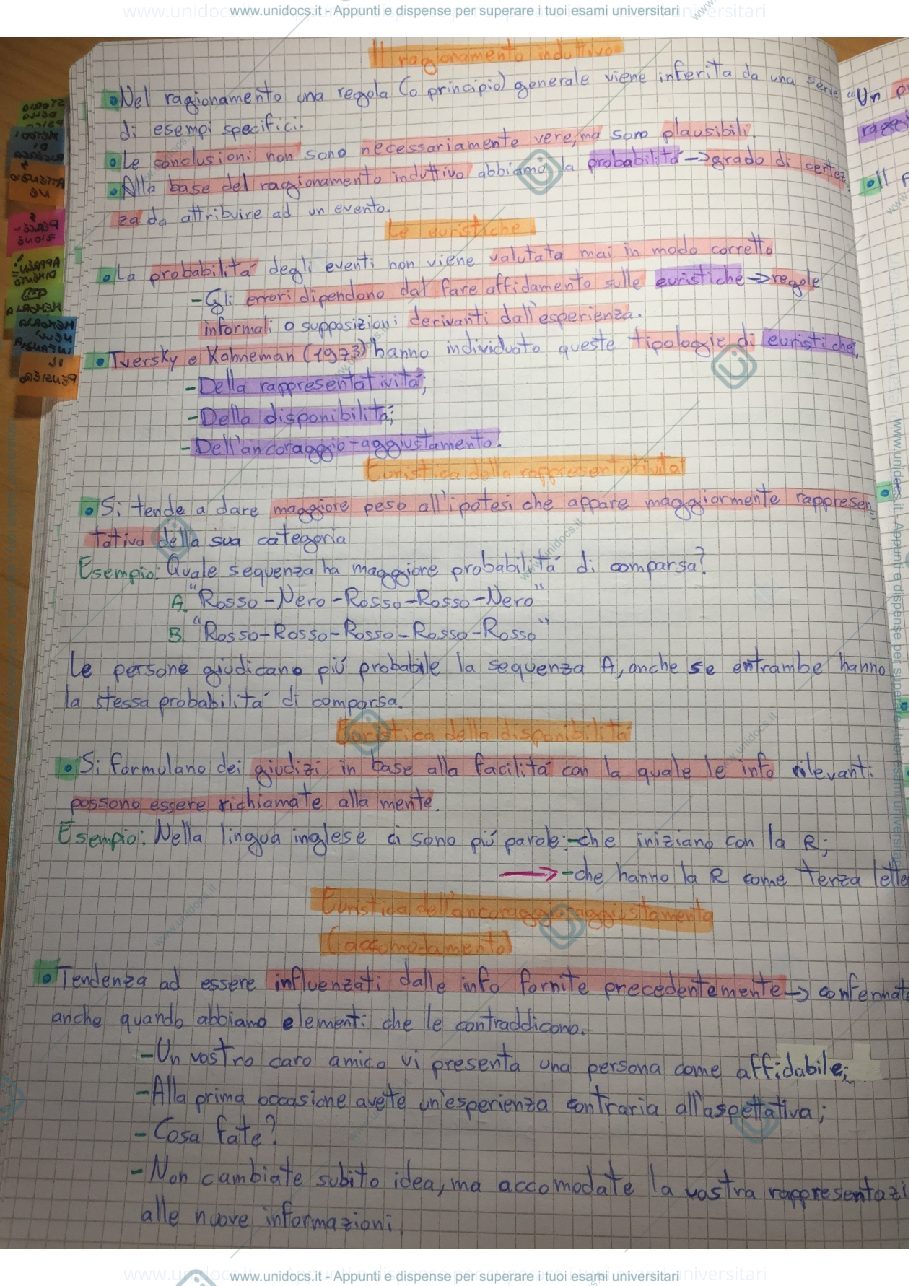 www.unidocs.it - Appunti e dispense per superare i tuoi esami universitari
Il ragionamento induttivo
Nel ragionamento una regola (o principio) generale viene inferita da una serie
di esempi specifici.
Le conclusioni non sono necessariamente vere, ma sono plausibili.
Alla base del ragionamento induttivo abbiamo la probabilità → grado di certez
za da attribuire ad un evento.
Le euristiche
La probabilità degli eventi non viene valutata mai in modo corretto
- Gli errori dipendono dal fare affidamento sulle euristiche → regole
informali o supposizioni derivanti dall'esperienza.
Tversky e Kahneman (1973) hanno individuato queste tipologie di euristiche
- Della rappresentatività;
- Della disponibilità;
- Dell'ancoraggio-aggiustamento.
Euristica della rappresentatività
Si tende a dare maggiore peso all'ipotesi che appare maggiormente rappresen
tativa della sua categoria
Esempio: Quale sequenza ha maggiore probabilità di comparsa?
A. "Rosso-Nero-Rosso-Rosso-Nero"
B. "Rosso-Rosso-Rosso-Rosso-Rosso"
Le persone giudicano più probabile la sequenza A, anche se entrambe hanno
la stessa probabilità di comparsa.
Euristica della disponibilità
Si formulano dei giudizi in base alla facilità con la quale le info rilevanti
possono essere richiamate alla mente.
Esempio: Nella lingua inglese ci sono più parole: -che iniziano con la R;
→ -che hanno la R come terza lette
Euristica dell'ancoraggio-aggiustamento
(accomodamento)
Tendenza ad essere influenzati dalle info fornite precedentemente → confermat
anche quando abbiamo elementi che le contraddicono.
- Un vostro caro amico vi presenta una persona come affidabile;
- Alla prima occasione avete un'esperienza contraria all'aspettativa;
- Cosa fate?
- Non cambiate subito idea, ma accomodate la vostra rappresentazi
alle nuove informazioni.
www.unidocs.it - Appunti e dispense per superare i tuoi esami universitari